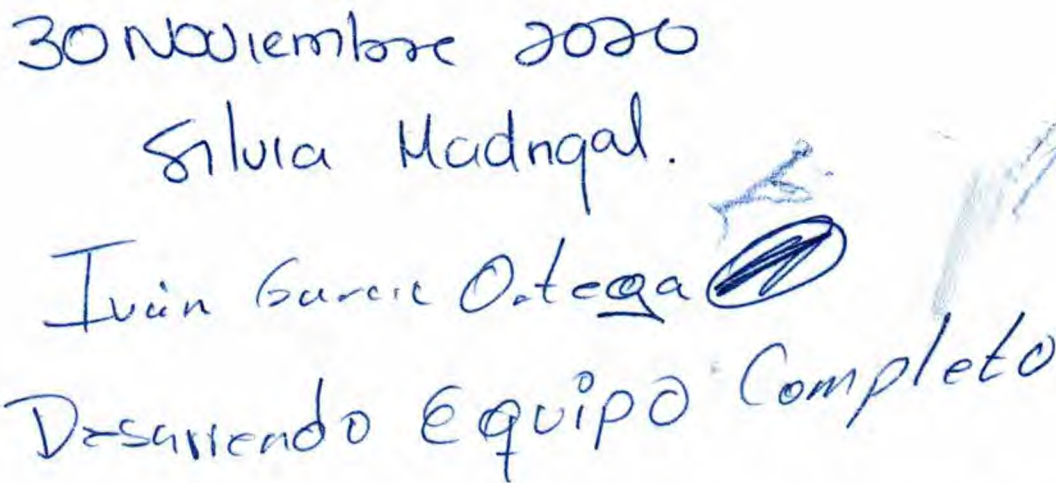 30 Noviembre 2020
Silvia Madrigal.
Iván Garcia Ortega
Desarriendo Equipo Completo